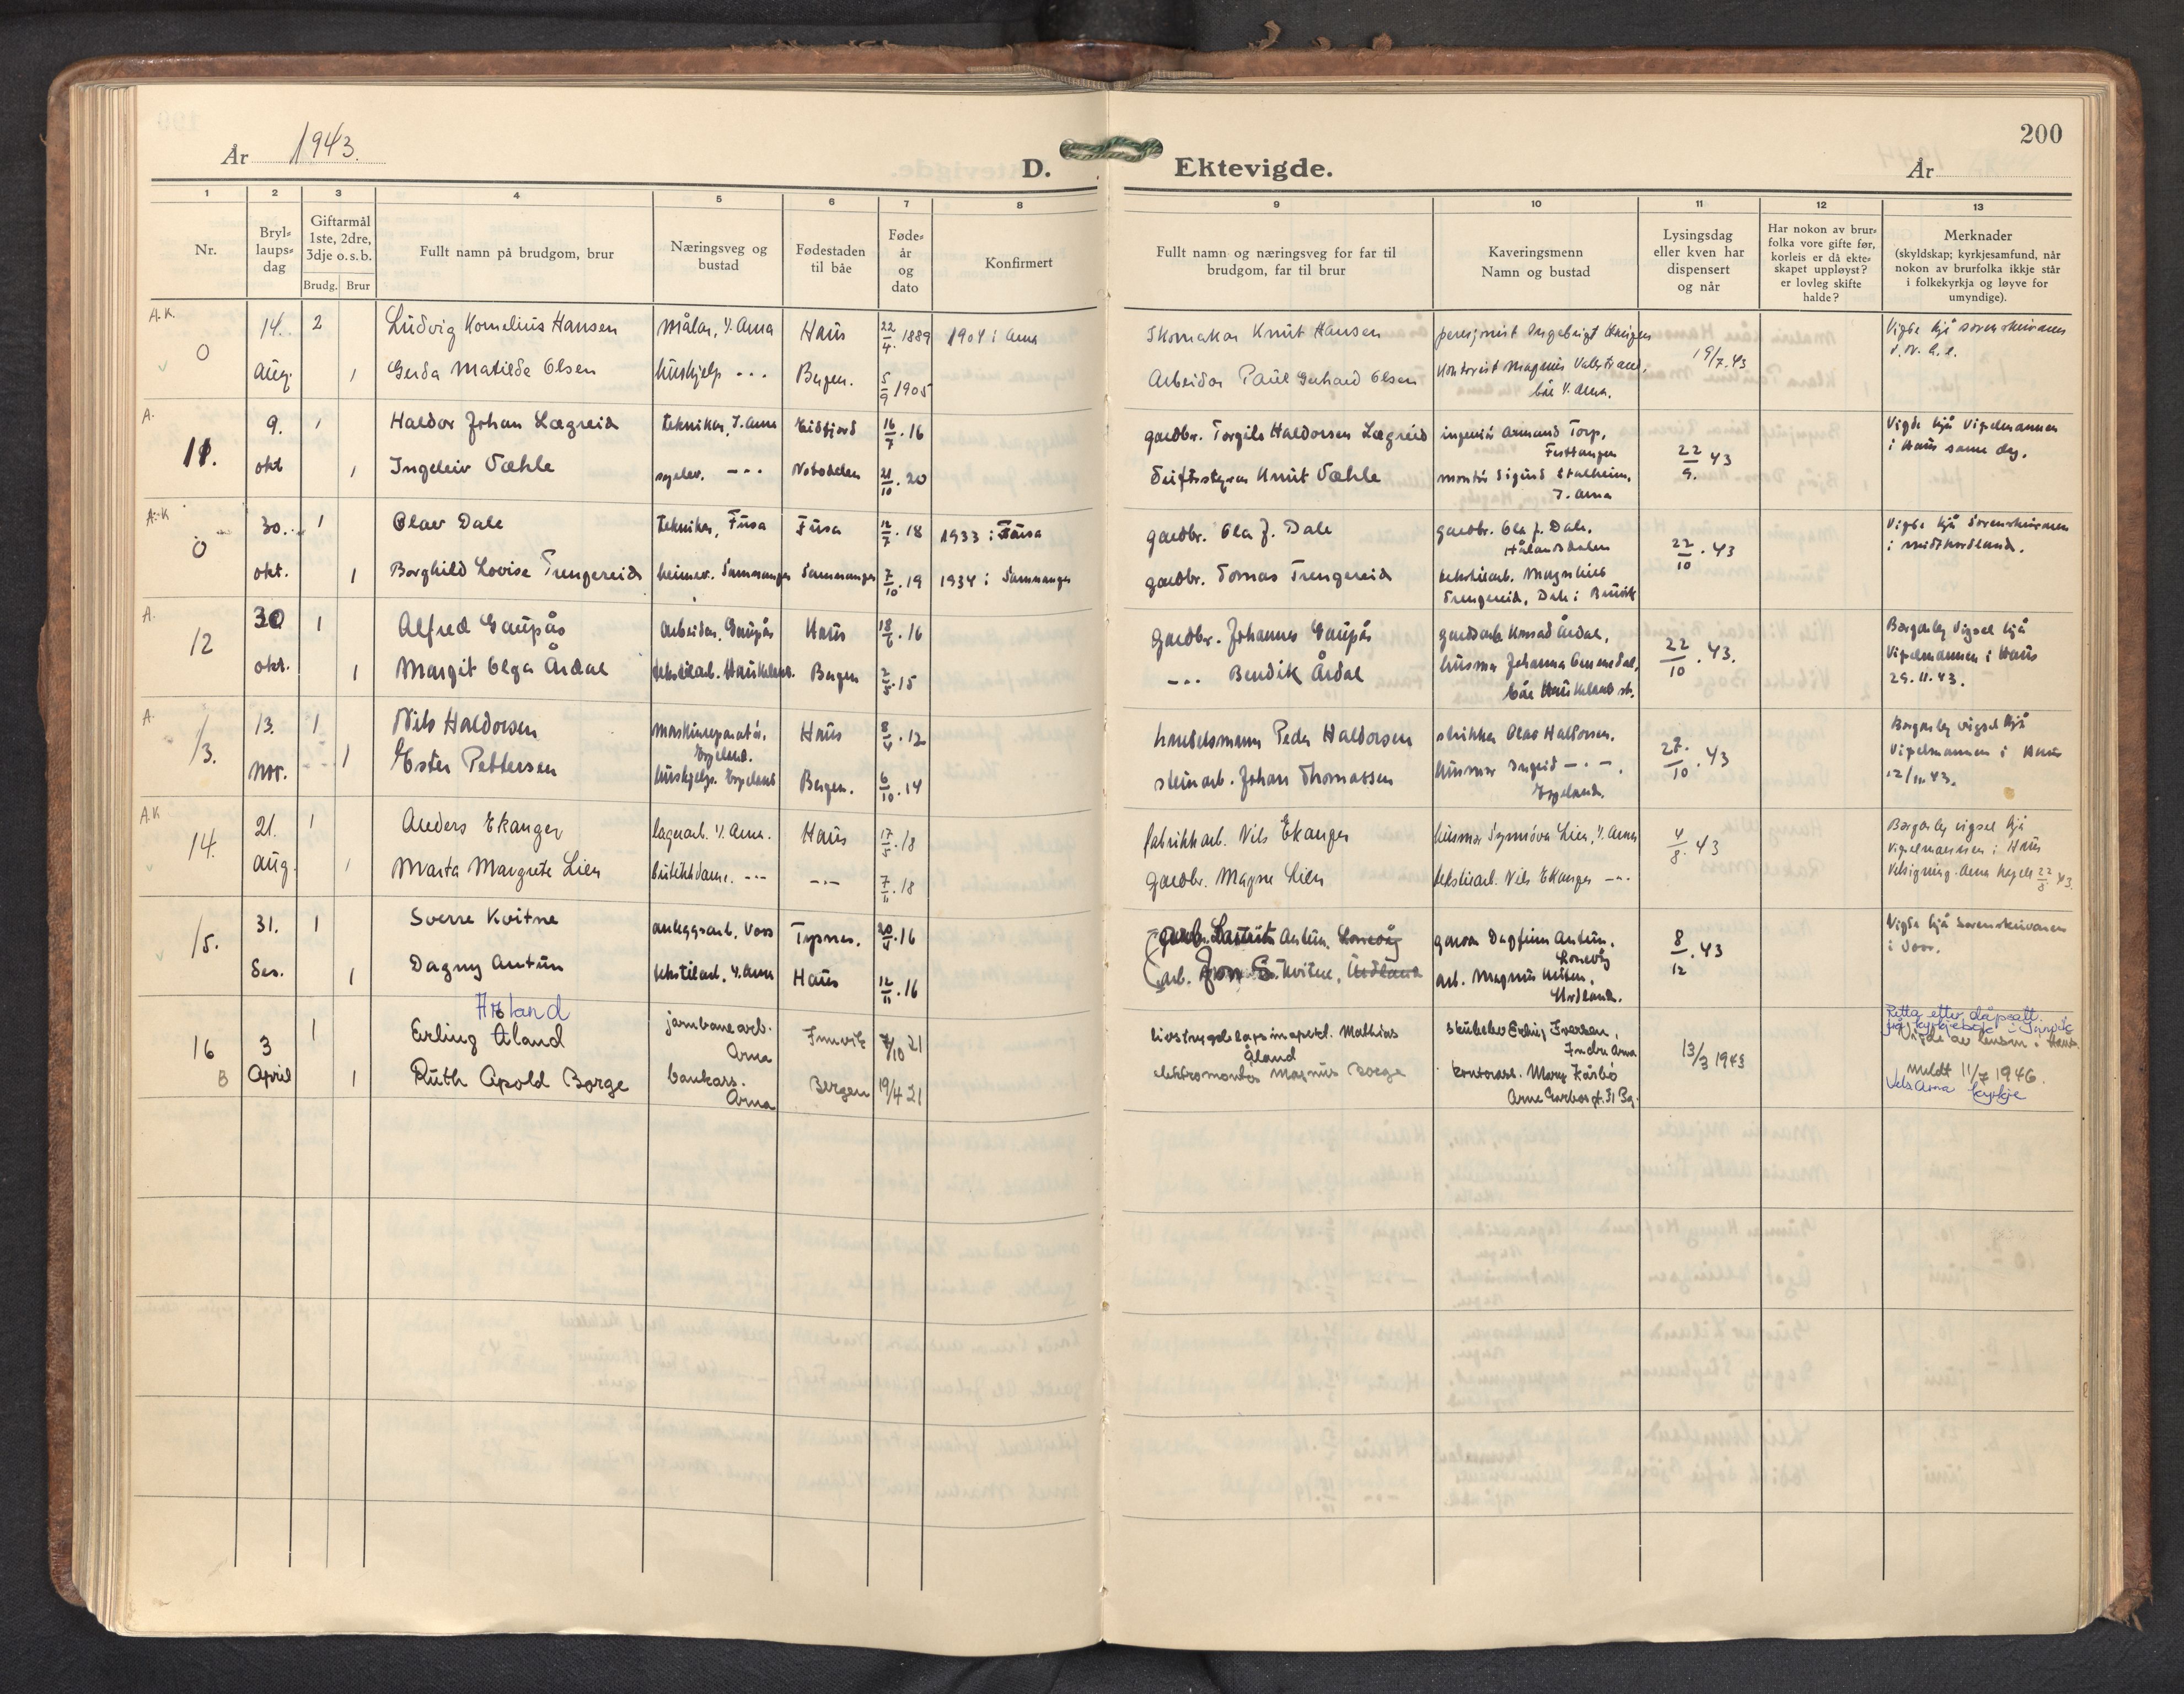 200
År 1943.
D.
Ektevigde.
År
1 2 3 4 5 6 7 8 9 10 11 12 13
Nr.
Bryl-
laups-
dag
Giftarmål
1ste, 2dre,
3dje o.s.b.
Brudg. Brur
Fullt namn på brudgom, brur
Næringsveg og
bustad
Fødestaden
til båe
Føde-
år
og
dato
Konfirmert
Fullt namn og næringsveg for far til
brudgom, far til brur
Kaveringsmenn
Namn og bustad
Lysingsdag
eller kven har
dispensert
og når
Har nokon av brur-
folka vore gifte før,
korleis er då ekte-
skapet uppløyst?
er lovleg skifte
halde?
Merknader
(skyldskap; kyrkjesamfund, når
nokon av brurfolka ikkje står
i folkekyrkja og løyve for
umyndige).
A.K.
0 14. 2 Ludvig Kornelius Hansen Målar, Y. Arna Haus 22/4. 1889 1904 i Arna Skomakar Knut Hansen pensjonist Ingebrigt 19/7.43 Vigde hjå sorenskrivaren
aug. 1 Gerda Matilde Olsen hushjelp - - - Bergen. 5/9 1905 Arbeidar Paul Gerhard Olsen kontorist Magnus
båe Y. Arna.
A.
11. 9. 1 Haldor Johan Lægreid tekniker, I. Arna Eidfjord 16/7. 16 gardbr. Torgils Haldorsen Lægreid ingeniør Armand Torp, 22/9. 43 Vigde hjå Vigselmannen
i Haus same dag.
okt 1 Ingeleiv Dæhle - - - Notodden 21/10. 20 Driftsstyrar Knut Dæhle montør Sigurd Stalheim,
I. Arna
A.K
0 30. 1 Olav Dale tekniker, Fusa Fusa 12/7. 18 1933 i Fusa gardbr. Ola J. Dale gardbr. Ola J. Dale, 22/10. 43 Vigde hjå Sorenskrivaren
Hålandsdalen i Midthordland.
okt. 1 Borghild Lovise Trengereid heimev. Samnanger Samnanger 7/10. 19 1934 i Samnanger gardbr. Tomas Trengereid tekstilarb. Magnhild
Trengereid, Dale i Bruvik
A.
12 30 1 Alfred Gaupås Arbeidar, Gaupås Haus 18/6. 16 Gardbr. Johannes Gaupås gardsarb. Konrad Årdal, 22/10. 43. Borgarleg Vigsel hjå
Vigselmannen i Haus
29.11.43.
okt. 1 Margit Olga Årdal tekstilarb. Haukeland. Bergen 2/5. 15 - - - Bendik Årdal husmor Johanna
båe Haukeland st.
A.
13. 13. 1 Nils Haldorsen Maskinreparatør, Haus 8/4. 12 handelsmann Peder Haldorsen strikkar Olav Haldorsen. 27./10. 43 Borgarleg vigsel hjå
Espeland. Vigselmannen i Haus
12/11.43.
nov. 1 Ester Pettersen hushjelp. Espeland Bergen. 6/10. 14 steinarb. Johan Thomassen husmor Ingrid - . - .
Espeland.
A.K
14. 21. 1 Anders Ekanger lagerarb. Y. Arna. Haus 17/5. 18 fabrikkarb. Nils Ekanger husmor Synnøva Lien, Y. Arna 4/8. 43 Borgarleg vigsel hjå
vigselmannen i Haus
Velsigning. Arna kyrkje 22/8 43.
aug. 1 Marta Margrete Lien butikkdame. - - - - . - 7/11. 18 gardbr. Magne Lien tekstilarb. Nils Ekanger - - -
15. 31. 1 Sverre Kvitne anleggsarb. Voss Tysnes. 20/4. 16 gardbr. Laurits Antun. Lonevåg garver Dagfinn Antun. 8/12. 43 Vigde hjå Sorenskrivaren
Lonevåg i Voss.
Des. 1 Dagny Antun tekstilarb. Y. Arna Haus 12/11. 16 arb. Jon S. Kvitne, Urdland arb. Magnus
Urdland.
Årland
16 3 1 Erling Åland jarnbanearb. Innvik 7/10 21 livstrygdelagsinspekt. Mathias skulelev Erling Iversen, 13/3 1943 Retta etter dåpsatt.
Arna Åland Indre Arna frå kyrkjebok i Innvik
Vigde av lensm. i Haus
B April 1 Ruth Apold Borge bankass. Bergen 19/4 21 elektromontør Magnus Borge kontorass. Mary Kårbø meldt 11/7 1946.
Arna Arne Garborgst. 31 Bg. Vels. Arna kyrkje